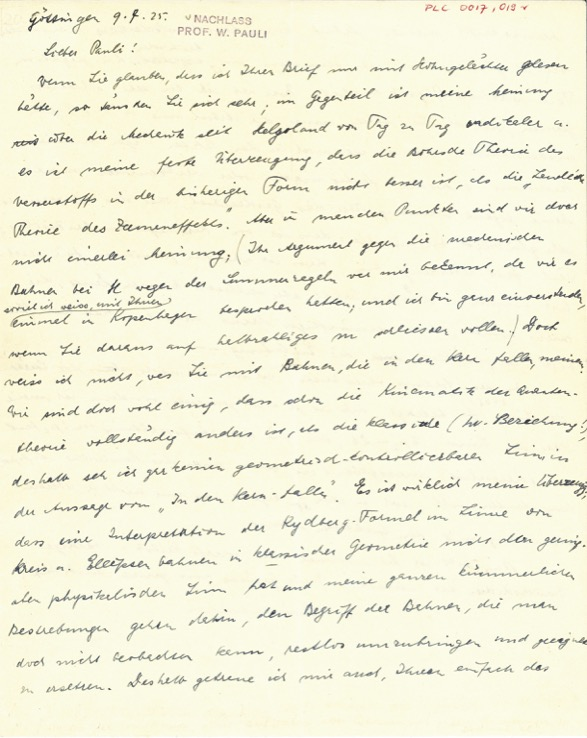 PLC 0017,019r
Göttingen 9.7.25.
NACHLASS
PROF. W. PAULI
Lieber Pauli!
Wenn Sie glauben, dass ich Ihren Brief nur mit Hohngelächter gelesen
hätte, so täuschen Sie sich sehr; im Gegenteil ist meine Meinung
über die Mechanik seit Helgoland von Tag zu Tag radikaler u.
es ist meine feste Überzeugung, dass die Bohrsche Theorie des
Wasserstoffs in der bisherigen Form nicht besser ist, als die „Landésche
Theorie des Zeemaneffekts". Aber in manchen Punkten sind wir doch
nicht einerlei Meinung; (Ihr Argument gegen die mechanischen
Bahnen bei H wegen der Summenregeln war mir bekannt, da wir es
soviel ich weiss, mit Ihnen
einmal in Kopenhagen besprochen hatten; und ich bin ganz einverstanden,
wenn Sie daraus auf halbzahliges n schliessen wollen.) Doch
weiss ich nicht, was Sie mit Bahnen, die in den Kern fallen, meinen.
Wir sind doch wohl einig, dass schon die Kinematik der Quanten-
theorie vollständig anders ist, als die klassische (hν-Beziehung!),
deshalb seh ich gar keinen geometrisch-kontrollierbaren Sinn in
der Aussage von „In den Kern-fallen". Es ist wirklich meine Überzeug,
dass eine Interpretation der Rydberg-Formel im Sinne von
Kreis u. Ellipsenbahnen in klassischer Geometrie nicht den gering-
sten physikalischen Sinn hat und meine ganzen kümmerlichen
Bestrebungen gehen dahin, den Begriff der Bahnen, die man
doch nicht beobachten kann, restlos umzubringen und geeignet
zu ersetzen. Deshalb getraue ich mir auch, Ihnen einfach das